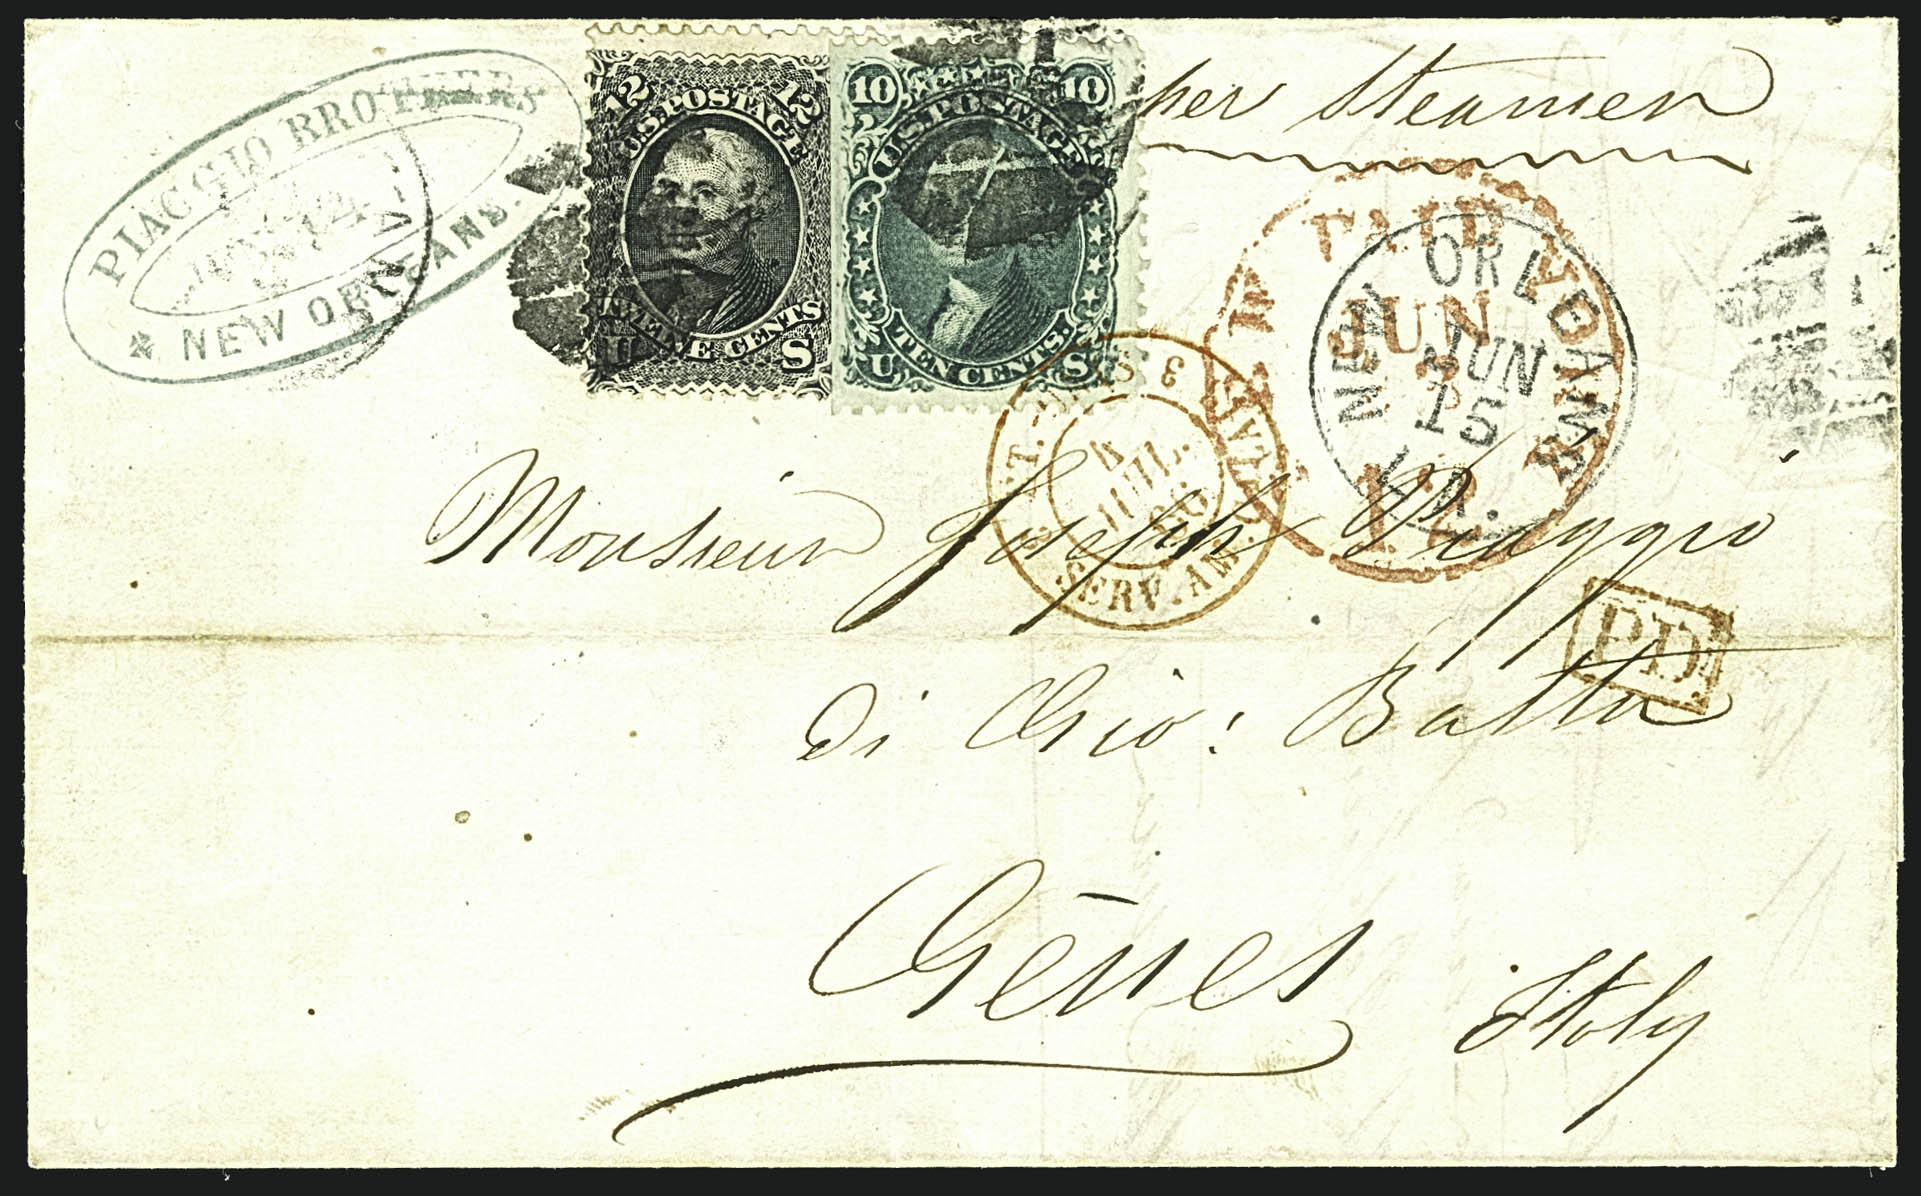 PIAGGIO BROTHERS
JUN 14
NEW ORLEANS.
12 12
U.S. POSTAGE
TWELVE CENTS
U S
10 10
U.S. POSTAGE
TEN CENTS.
U S
per Steamer
PAID
JUN
12
NEW ORLEANS
JUN
15
LA.
3
4
JUIL.
66
SERV. AM. CALAIS
P.D.
Monsieur Joseph Piaggio
di Gio: Batta
Gênes
Italy